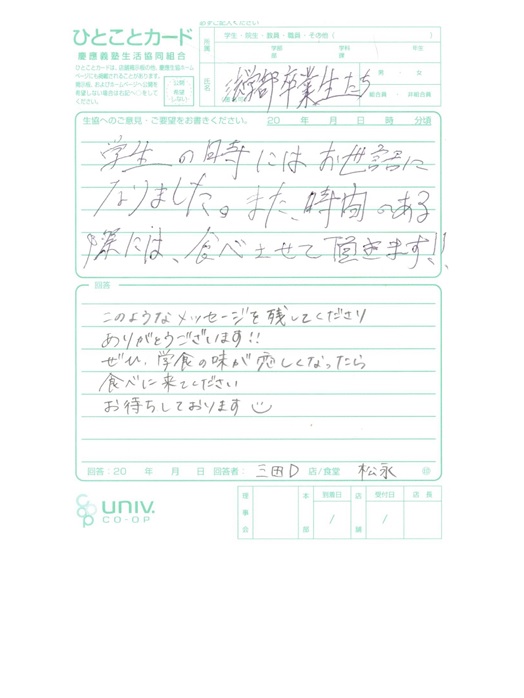 必ずご記入ください
ひとことカード
慶應義塾生活協同組合
ひとことカードは、店頭掲示板の他、慶應生協ホーム
ページにも掲載されることがあります。
公開
希望
しない
所属
学生・院生・教員・職員・その他（　　　）
学部
学科
年生
氏名
学部卒業生たち
男・女
組合員・非組合員
生協へのご意見・ご要望をお書きください。　20　年　月　日　時　分頃
学生の時にはお世話に
なりました。また、時間のある
際には、食べさせて頂きます!!
回答
このようなメッセージを残してくださり
ありがとうございます!!
ぜひ、学食の味が恋しくなったら
食べに来てください
お待ちしております
回答：20　年　月　日　回答者：三田D　店/食堂　松永　㊞
coop UNIV.
CO-OP
理事会
本部
到着日
/
店舗
受付日
/
店長